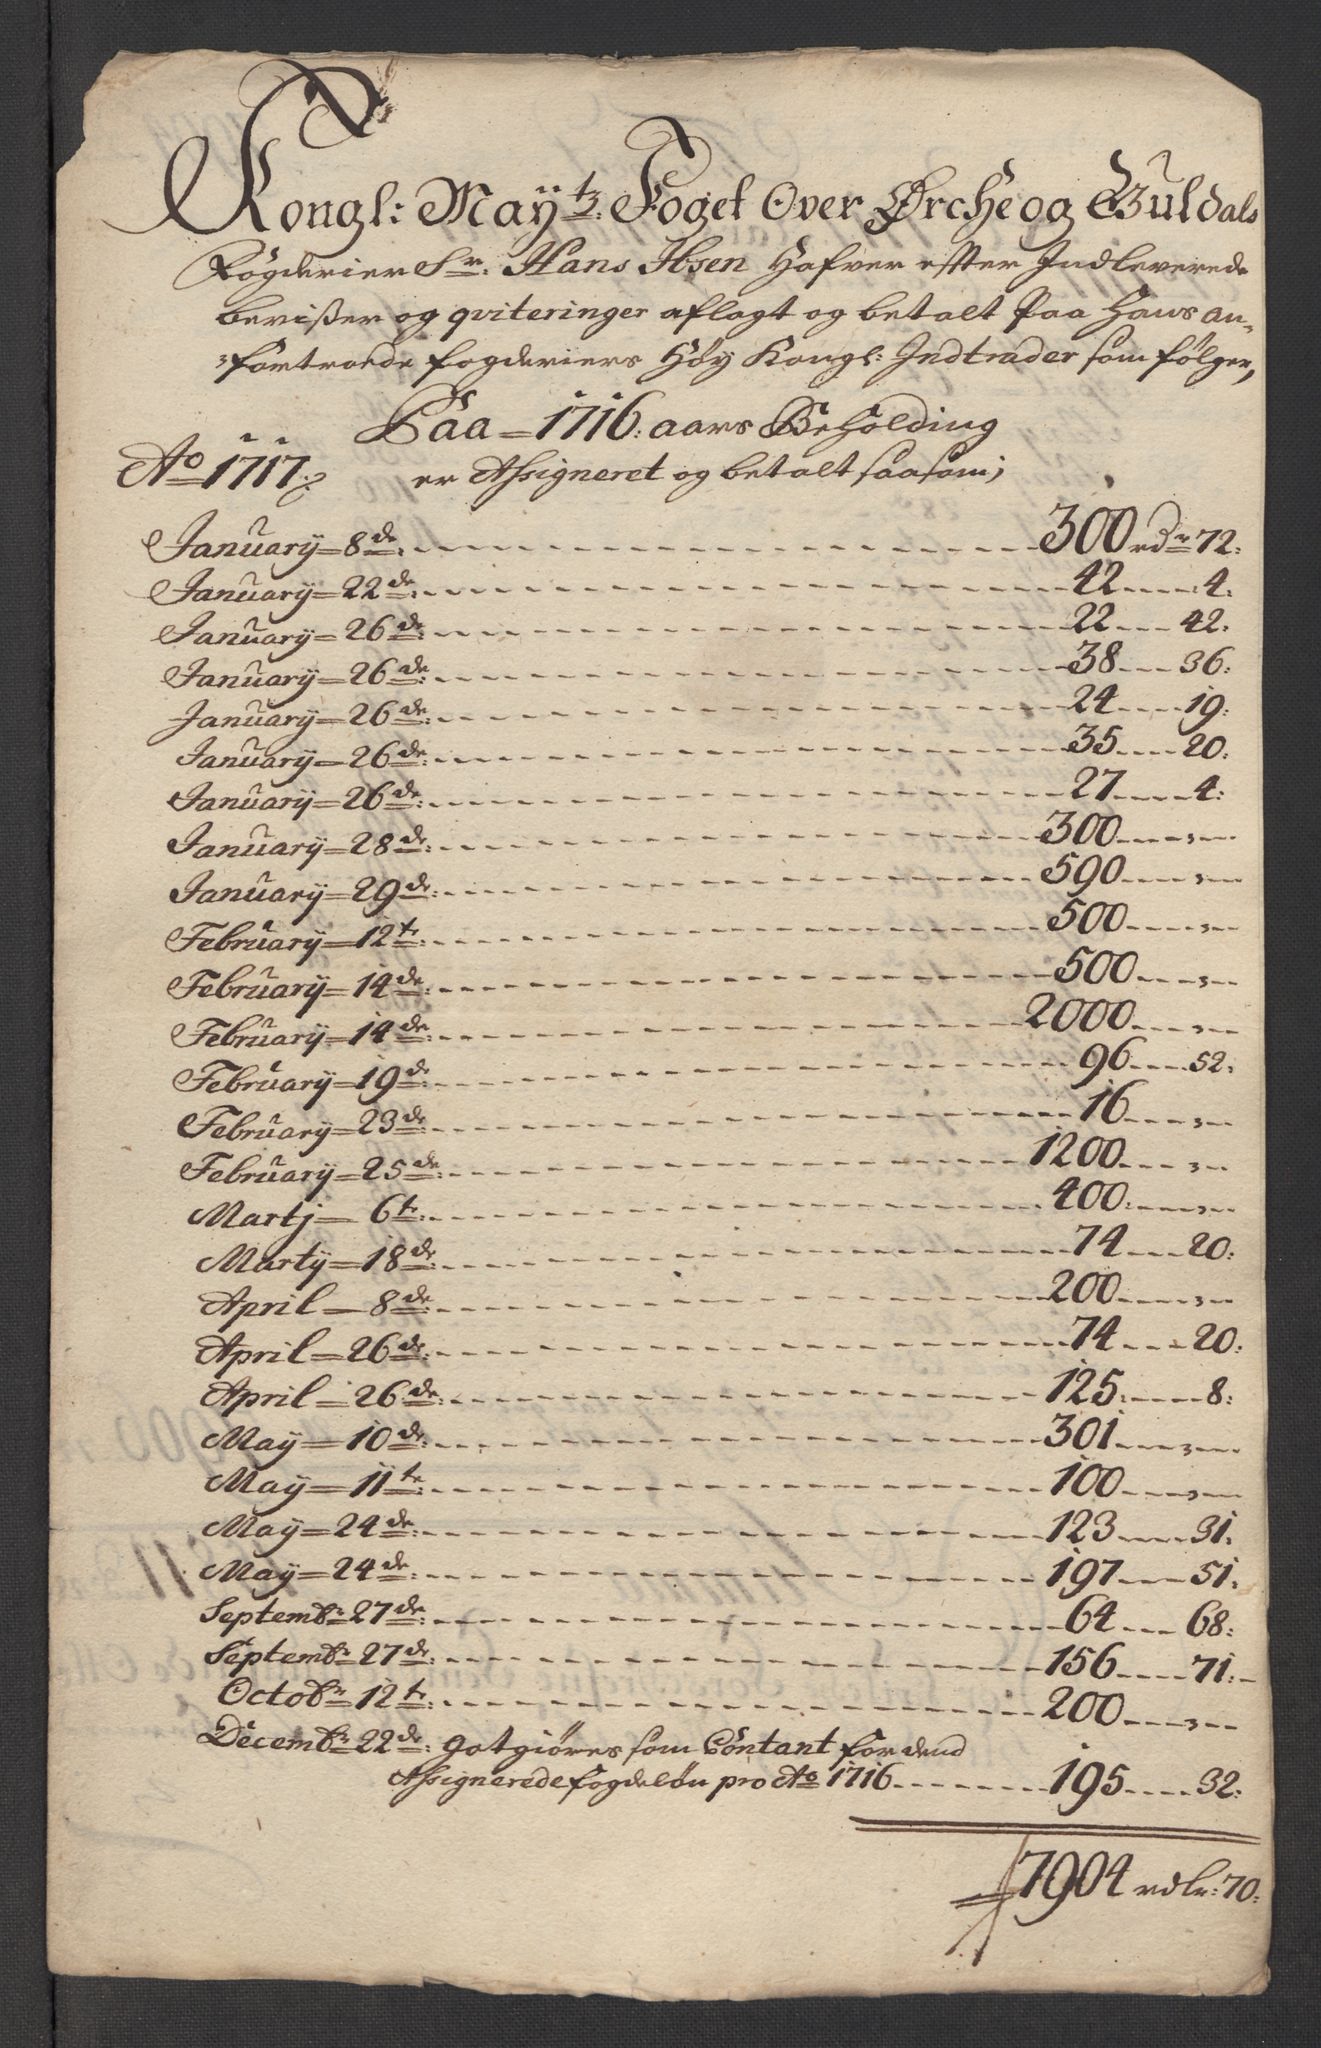 Kongl: Mayts: Foget Over Ørche og Guldals
Fogderier Sr. Hans Ibsen Hafver efter Indleverede
bevißer og qviteringer aflagt og betalt Paa Hans an-
fortroede fogderiers Høy Kongl: Indtrader som følger,
Paa 1716: aars Beholding
Ao 1717: er Assigneret og betalt saasom;
January 8de: 300 rdr 72:
January 22de: 42 4:
January 26de: 22 42:
January 26de: 38 36:
January 26de: 24 19:
January 26de: 35 20:
January 26de: 27 4:
January 28de: 300
January 29de: 590
February 12te: 500
February 14de: 500
February 14de: 2000
February 19de: 96 52:
February 23de: 16
February 25de: 1200
Martj 6te: 400:
Marty 18de: 74 20:
April 8de: 200
April 26de: 74 20:
April 26de: 125: 8:
May 10de: 301
May 11te: 100
May 24de: 123 31:
May 24de: 197 51:
Septembr: 27de: 64 68:
Septembr: 27de: 156 71:
Octobr: 12te: 200
Decembr: 22de: Gotgiøres som Contant for dend
Assignerede fogdeløn pro Ao 1716 195 32:
7904 rdlr: 70: